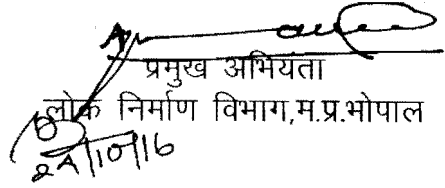 प्रमुख अभियंता
लोक निर्माण विभाग,म.प्र.भोपाल
24/10/16